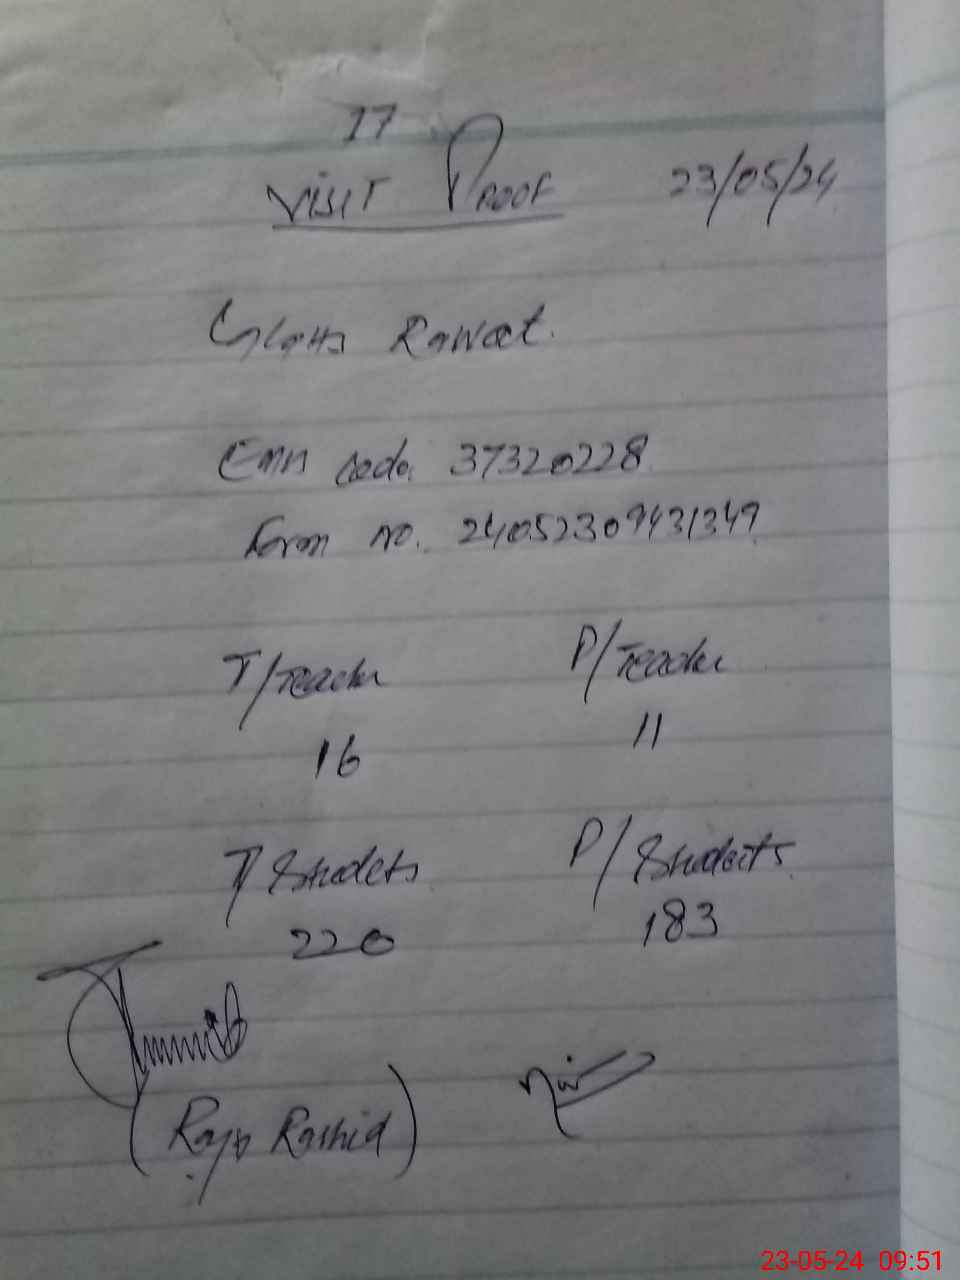 17
VISIT PROOF 23/05/24
GGHS Rawat.
Emis code. 37320228
Form no. 24052309431349
T/Teacher P/Teacher
16 11
T/Students P/Students
220 183
(Raja Rashid)
23-05-24 09:51